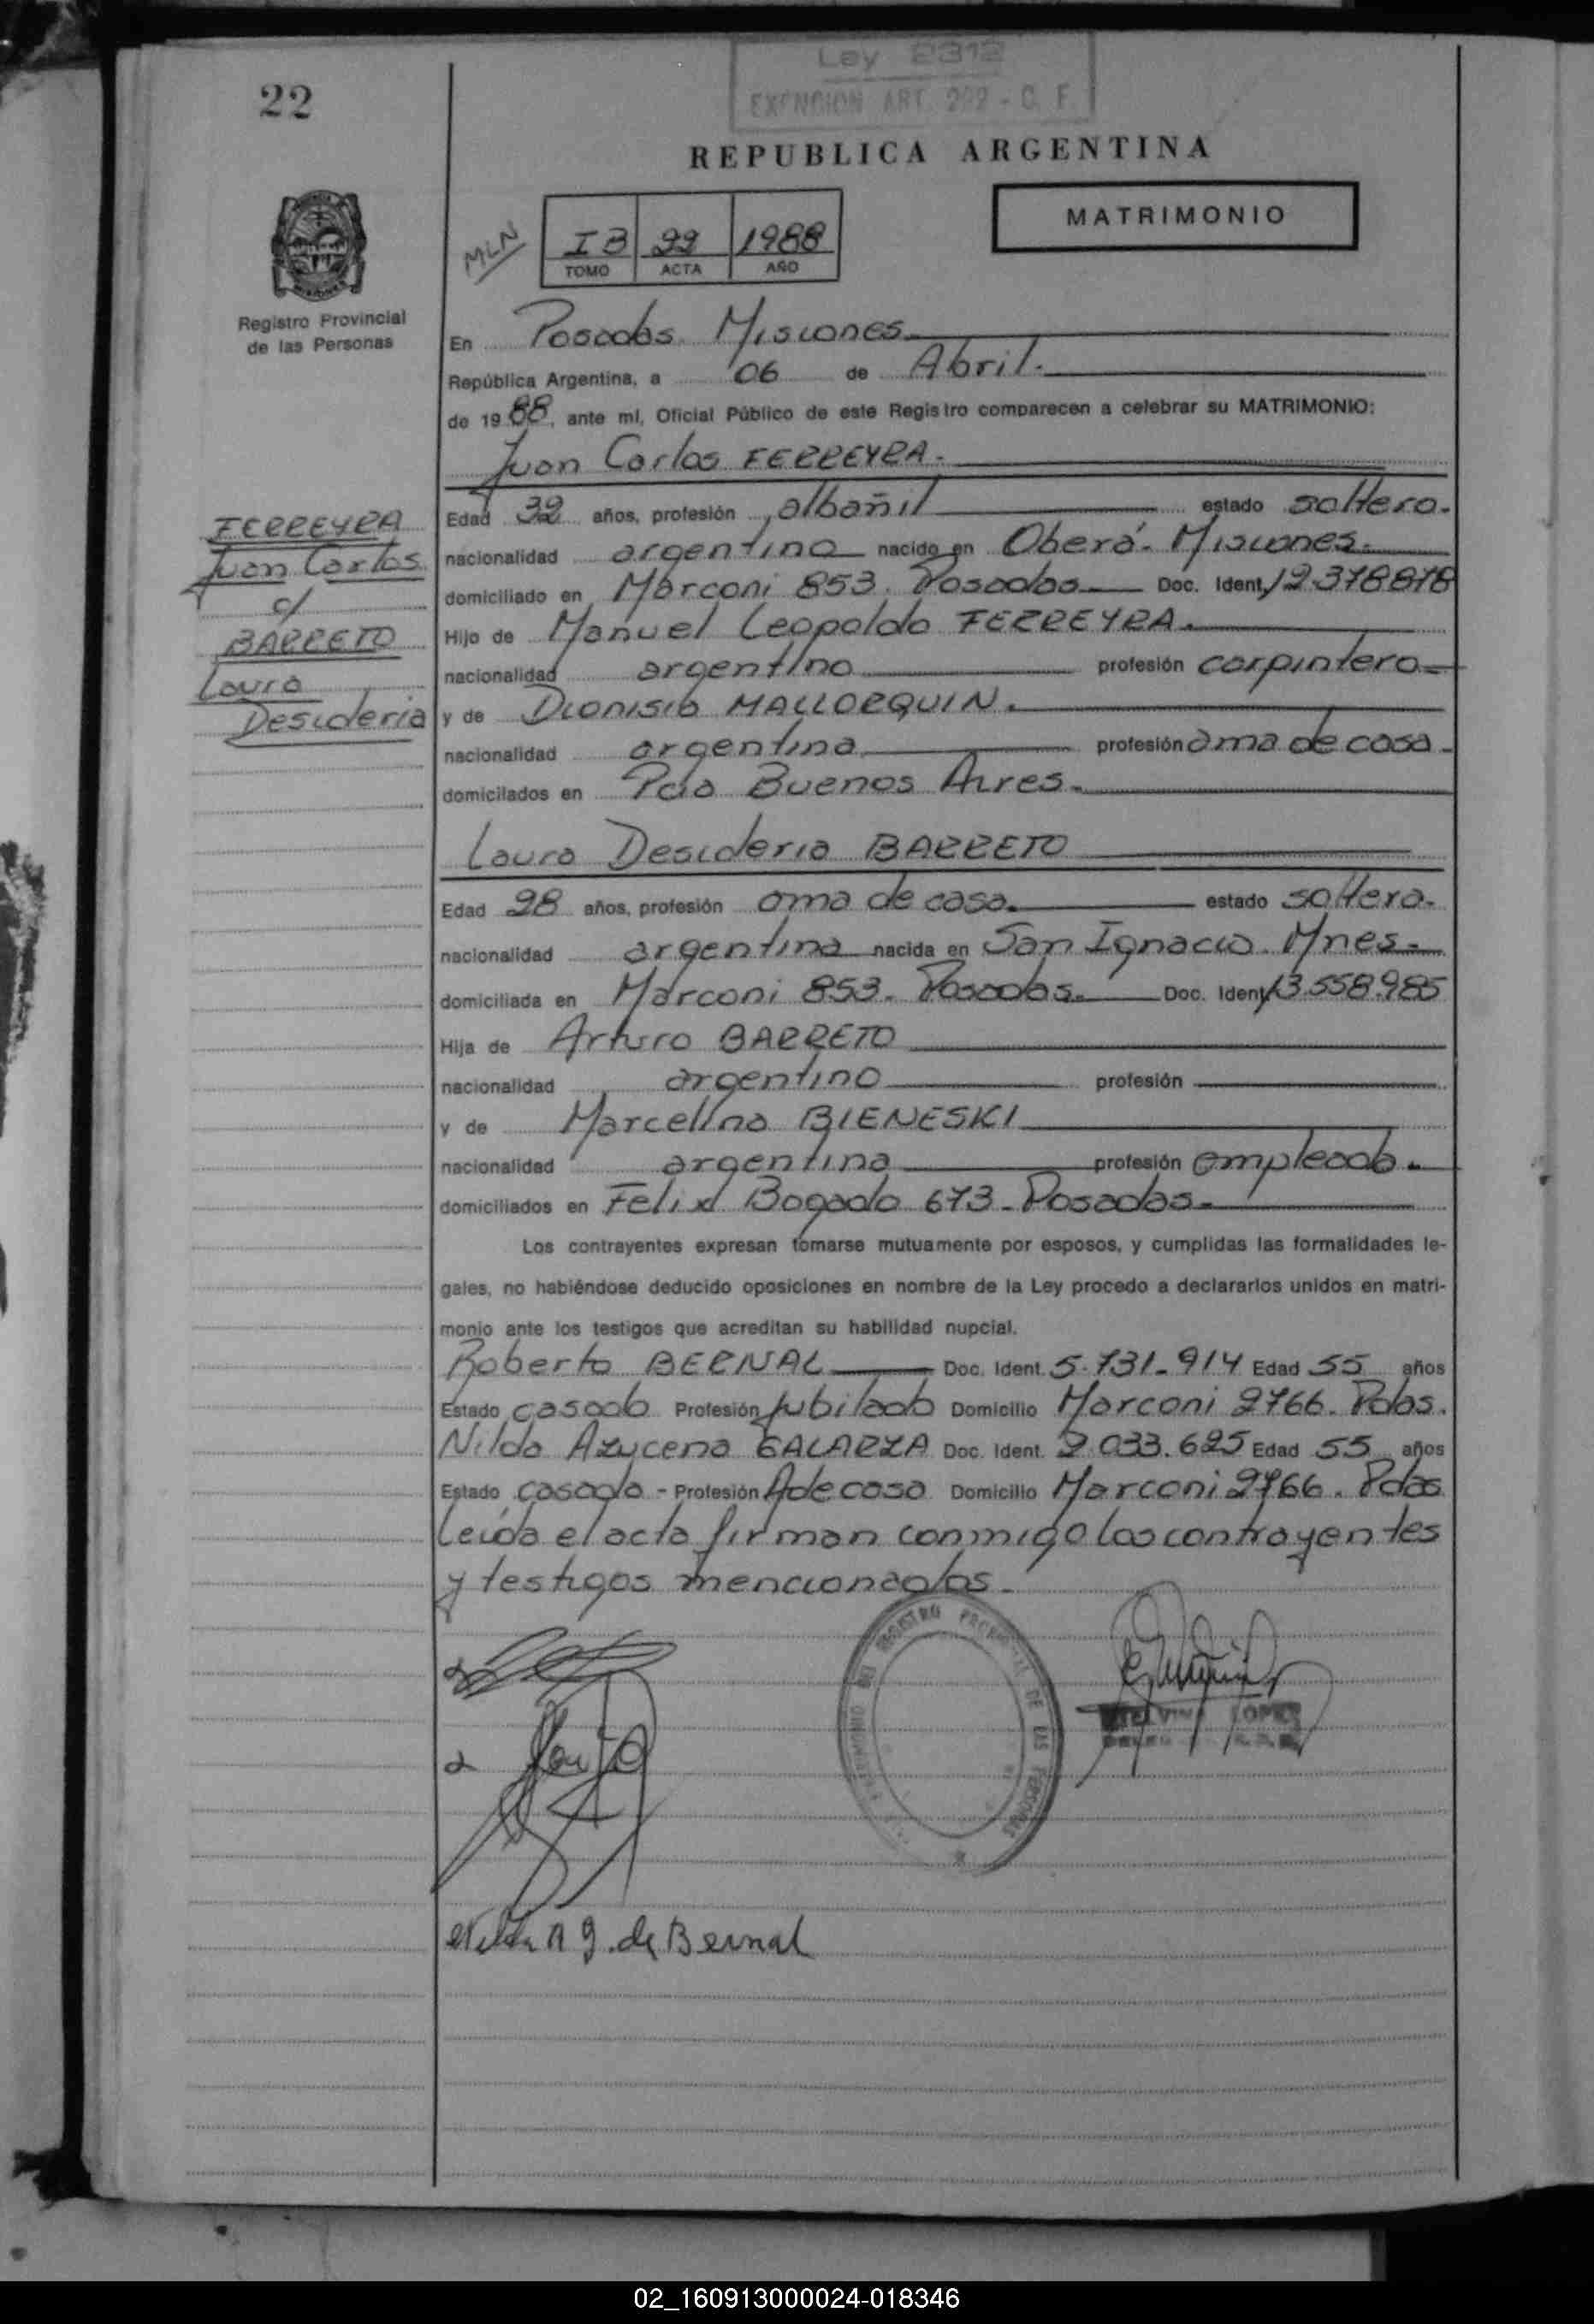 Ley 2312
EXENCION ART. 292 - C. F.
22
REPUBLICA ARGENTINA
MATRIMONIO
MLN
I B 22 1988
TOMO ACTA AÑO
Registro Provincial
de las Personas
En Posadas. Misiones.
República Argentina, a 06 de Abril.
de 1988, ante mi, Oficial Público de este Registro comparecen a celebrar su MATRIMONIO:
Juan Carlos FERREYRA.
FERREYRA
Juan Carlos
c/
BARRETO
Laura
Desideria
Edad 32 años, profesión albañil estado soltero.
nacionalidad argentino nacido en Oberá. Misiones.
domiciliado en Marconi 853. Posadas Doc. Ident. 12.378878
Hijo de Manuel Leopoldo FERREYRA.
nacionalidad argentino profesión carpintero
y de Dionisia MALLORQUIN.
nacionalidad argentina profesión ama de casa.
domicilados en Pcia Buenos Aires.
Laura Desideria BARRETO
Edad 28 años, profesión ama de casa. estado soltera.
nacionalidad argentina nacida en San Ignacio. Mnes.
domiciliada en Marconi 853. Posadas. Doc. Ident. 13.558.985
Hija de Arturo BARRETO
nacionalidad argentino profesión
y de Marcelina BIENESKI
nacionalidad argentina profesión empleada.
domiciliados en Felix Bogado 673. Posadas.
Los contrayentes expresan tomarse mutuamente por esposos, y cumplidas las formalidades le-
gales, no habiéndose deducido oposiciones en nombre de la Ley procedo a declararlos unidos en matri-
monio ante los testigos que acreditan su habilidad nupcial.
Roberto BERNAL Doc. Ident. 5.731.914 Edad 55 años
Estado casado Profesión Jubilado Domicilio Marconi 2766. Pdas.
Nilda Azucena GALARZA Doc. Ident. 2.033.625 Edad 55 años
Estado casada - Profesión A de casa Domicilio Marconi 2766. Pdas
Leída el acta firman conmigo los contrayentes
y testigos mencionados.
REGISTRO PROVINCIAL DE LAS PERSONAS
LOPEZ
Nilda A G. de Bernal
02_160913000024-018346